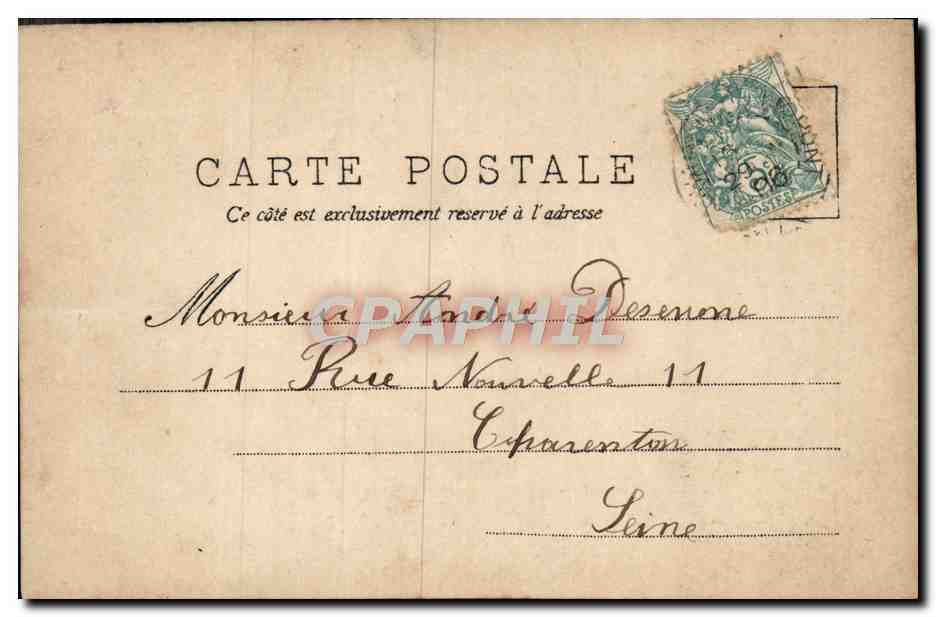 CARTE POSTALE
Ce côté est exclusivement reservé à l'adresse
5c
POSTES
29
06
CPAPHIL
Monsieur André Desenone
11 Rue Nouvelle 11
Charenton
Seine